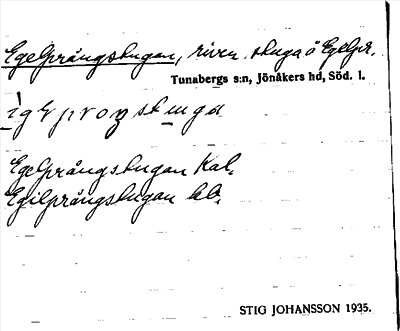 Egelsprångstugan, riven stuga å Egelspr.
Tunabergs s:n, Jönåkers hd, Söd. l.
Egelsprångstugan Kal.
Egilsprångstugan hb.
STIG JOHANSSON 1935.